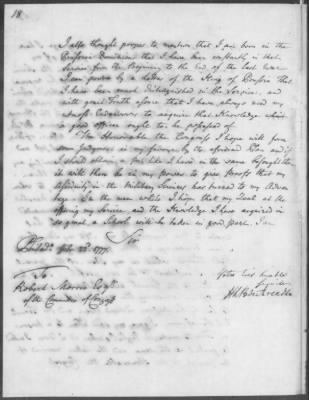 18
I also thought proper to mention that I am born in the
Prussian Dominion that I have been constantly in that
Service from the beginning to the end of the last war.
I can prove by a letter of the King of Prussia that
I have been much distinguished in the Service, and
with great Truth assure that I have always used my
utmost Endeavours to acquire that Knowledge which
a good officer ought to be possessed of.
The Honourable the Congress I hope will form
some Judgment in my favour by the aforesaid Plan and if
I should obtain a like I have in the same
it will then be in my power to give Proofs that my
in the Military Services has turned to my Advan
tage. In the mean while I hope that my Zeal at the
offering my Service and the Knowledge I have acquired in
so great a School will be taken in good part. I am
Sir
Philada. Feby 1777.
To
Robert Morris Esqr.
of the Committee of Congress
Your most humble